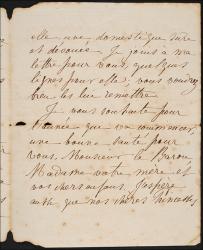 elle une domestique sure
et devouée. Je joins à ma
lettre pour vous, quelques
lignes pour elle; vous voudrez
bien les lui remettre.
Je vous souhaite pour
l'année que va commencer,
une bonne santé pour
vous, Monsieur le Baron
Madame votre mère et
vos chers enfans, j'espère
aussi que nos chères Princesses